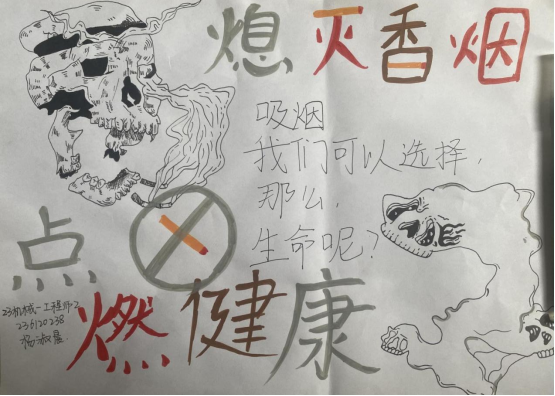 熄灭香烟
吸烟
我们可以选择,
那么,
生命呢?
点
燃健康
23机械-工程师2
236120238